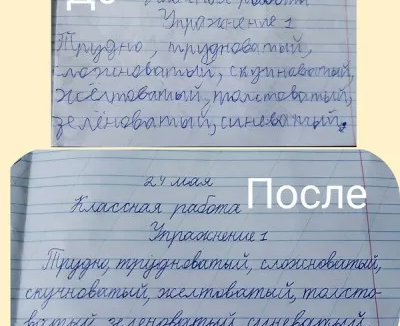 До
Классная работа
Упражнение 1
Трудно, трудноватый,
сложноватый, скучноватый,
жёлтоватый, толстоватый,
зелёноватый, синеватый.
24 мая
Классная работа
После
Упражнение 1
Трудно, трудноватый, сложноватый,
скучноватый, желтоватый, толсто-
ватый, зеленоватый, синеватый